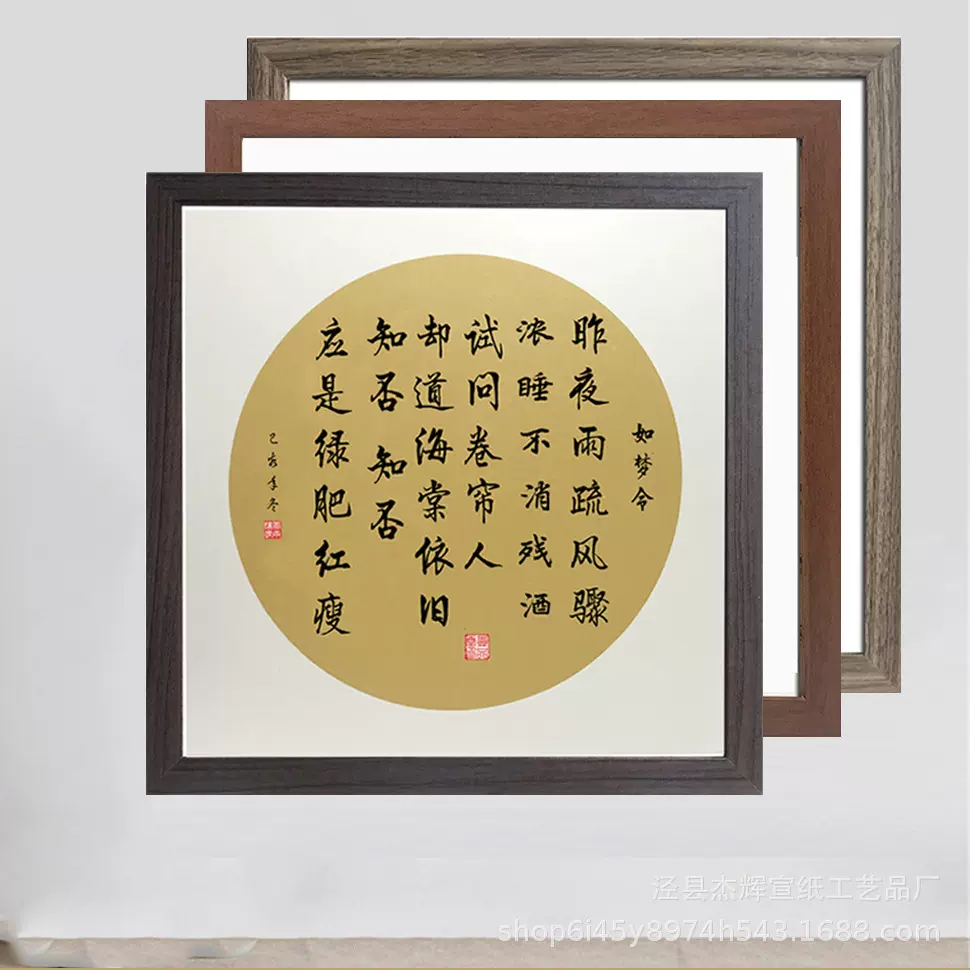 如梦令
昨夜雨疏风骤
浓睡不消残酒
试问卷帘人
却道海棠依旧
知否知否
应是绿肥红瘦
己亥年冬
泾县杰辉宣纸工艺品厂
shop6i45y8974h543.1688.com